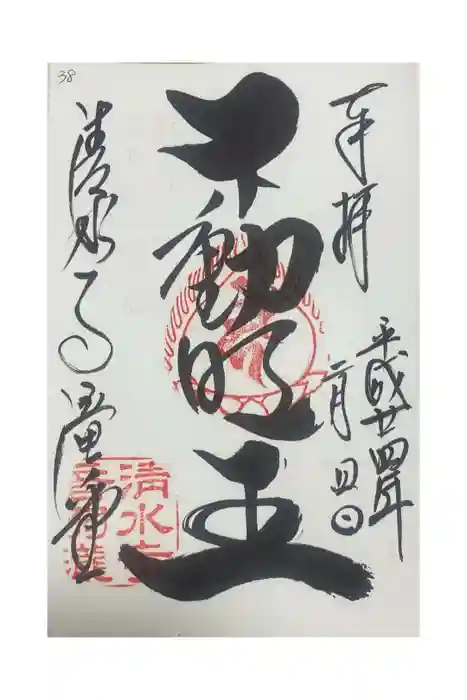 38
奉拝
平成廿四年
二月四日
不動明王
清水寺瀧堂
清水寺